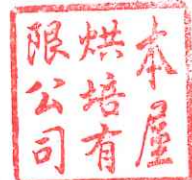 本屋
烘培有
限公司